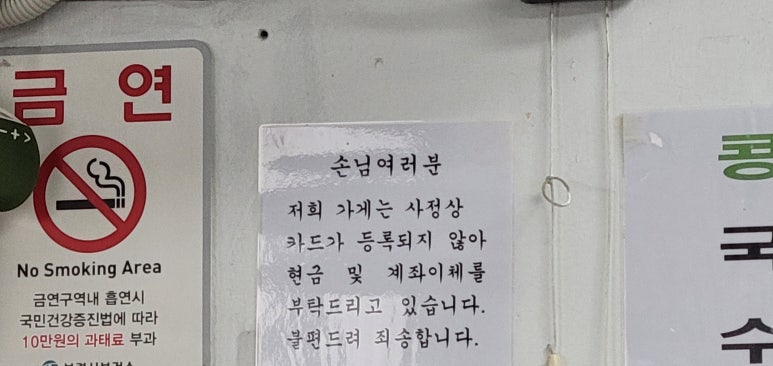 금 연
No Smoking Area
금연구역내 흡연시
국민건강증진법에 따라
10만원의 과태료 부과
손님여러분
저희 가게는 사정상
카드가 등록되지 않아
현금 및 계좌이체를
부탁드리고 있습니다.
불편드려 죄송합니다.
콩
국
수